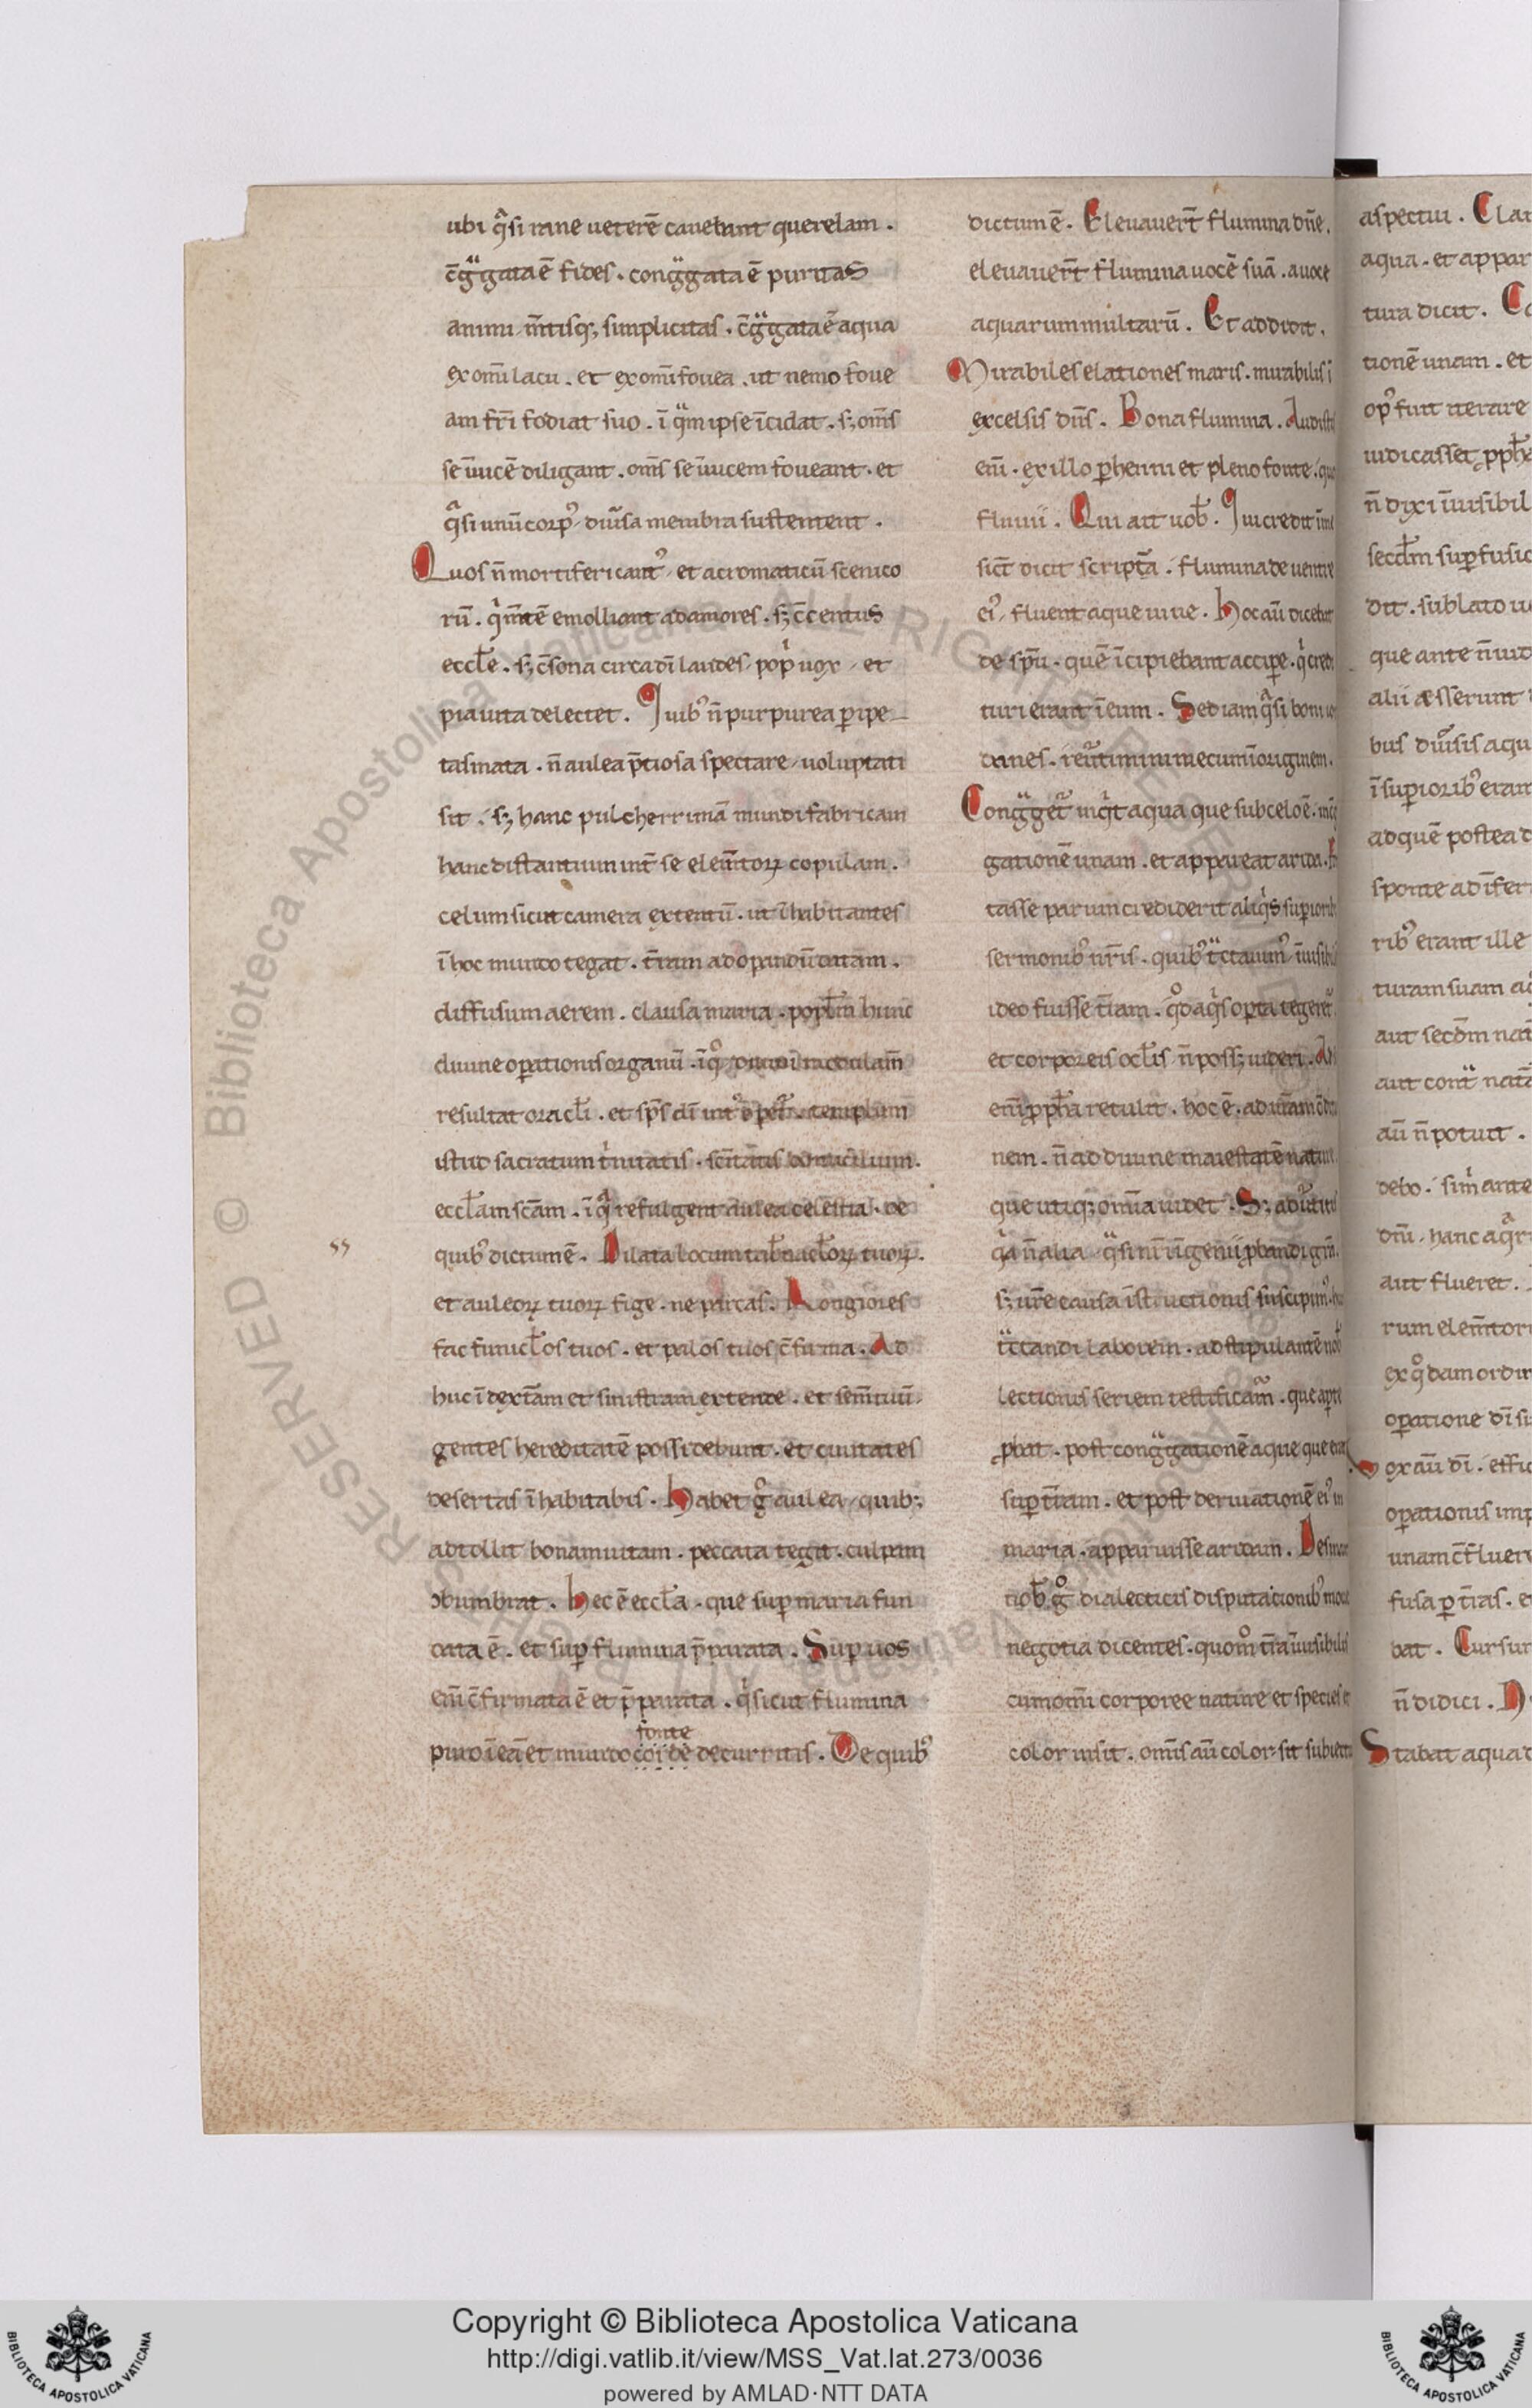 ubi q̃si rane ueterē canebant querelam.
c̄g̃gata ē fides. cong̃gata ē puritas
animi m̄tisq; simplicitas. c̄g̃gata ē aqua
ex om̄i lacu. et ex om̄i fouea. ut nemo foue
am fr̄i fodiat suo. ī q̃m ipse īcidat. s; om̄s
se īuicē diligant. om̄s se īuicem foueant. et
q̃si unū corpꝰ diũsa membra sustentent.
Quos n̄ mortiferi cantꝰ et acromaticū scenico
rū. q̇ m̄tē emolliant ad amores. s; c̄centus
eccl̄e. s; c̄sona circa dī laudes pop̓ uox et
pia uita delectet. Quibꝰ n̄ purpurea ꝑipe
tasmata. n̄ aulea p̄tiosa spectare uoluptati
sit. s; hanc pulcherrimā mundi fabricam
hanc distantium int̄ se elem̄torꝝ copulam.
celum sicut camera extentū. ut īhabitantes
ī hoc mundo tegat. t̄ram ad oꝑandū datam.
diffusum aerem. clausa maria. popl̄m hunc
diuine oꝑationis organū. ī qͦ diuini modulam̄
resultat oracl̄i. et sp̄s dī
istud sacratum t̓nitatis. sc̄itatis domicilium.
eccl̄am sc̄am. ī q̃ refulgent aulea celestia. de
quibꝰ dictum ē. Dilata locum tab̄nacl̄orꝝ tuorꝝ.
55
et auleorꝝ tuorꝝ fige. ne parcas. Longiores
fac funicl̄os tuos. et palos tuos c̄firma. Ad
huc ī dext̄am et sinistram extende. et sem̄ tuū
gentes hereditatē possidebunt. et ciuitates
desertas īhabitabis. Habet gͦ aulea quib;
adtollit bonam uitam. peccata tegit. culpam
obumbrat. Hec ē eccl̄a. que suꝑ maria fun
data ē. et suꝑ flumina p̄parata. Suꝑ uos
em̄ c̄firmata ē et p̄parata. q̇ sicut flumina
fonte
puro ī eā et mundo corde decurritis. De quibꝰ
dictum ē. Eleuauer̄t flumina dn̄e.
eleuauer̄t flumina uocē suā. a uoce
aquarum multarū. Et addidit.
Mirabiles elationes maris. mirabilis ī
excelsis dn̄s. Bona flumina.
em̄. ex illo ꝑhenni et pleno fonte. quo
fluuii. Qui ait uob̄. Qui credit
sict̄ dicit script̄a. flumina de uentre
eiꝰ fluent aque uiue. Hoc aū dicebat
de sp̄u. quē īcipiebant accipe. q̇ cred
turi erant ī eum. Sed iam q̃si boni ior
danes. reũtimini mecum ī originem.
Cong̃get̃ inq̇t aqua que sub celo ē.
gationē unam. et appareat arida.
tasse parum crediderit aliq̇s
sermonibꝰ nr̄is. quibꝰ t̃ctauimꝰ
ideo fuisse t̄ram. qͦd aq̇s opta
et corporeis ocl̄is n̄ poss; uideri. Ad
em̄ ꝓph̄a retulit. hoc ē. ad
nem. n̄ ad diuine maiestatē nature.
que utiq; om̄ia uidet. S;
q̇a n̄ alia q̃si nr̄i īgenii ꝓbandi gr̄a.
s; ur̄e causa īstructionis suscipimꝰ
t̃ctandi laborem. adstipulantē
lectionis seriem testificam̃. que aperte
ꝓbat. post cong̃gationē aque que erat
suꝑ t̄ram. et post deriuationē eiꝰ in
maria. apparuisse aridam.
nob̄ gͦ dialecticis disputationibꝰ
negotia dicentes. quomͦ t̄ra īuisibilis
cum om̄i corporee nature et species et
color insit. om̄is aū color sit
aspectui.
aqua. et appar
tura dicit.
tionē unam. et
opꝰ fuit iterare
iudicasset ꝓph̄a
n̄ dixi īuisibil
secd̄m suꝑfusio
dit. sublato
que ante n̄
alii asserunt
bus diũsis aqu
ī suꝑioribꝰ erant
ad quē postea
sponte ad īferi
ribꝰ erant ille
turam suam
aut secd̄m
aut cont̃
aū n̄ potuit.
debo. sim̓ ante
dn̄i. hanc
aut flueret.
rum elem̄tor
ex qͦdam ordin
oꝑatione dī
Uox aū dī. effic
oꝑationis imp
unam c̄fluere
fusa ꝑ t̄ras.
bat. Cursum
n̄ didici.
Stabat aqua
Copyright © Biblioteca Apostolica Vaticana
http://digi.vatlib.it/view/MSS_Vat.lat.273/0036
powered by AMLAD·NTT DATA
BIBLIOTECA APOSTOLICA VATICANA
BIBLIOTECA APOSTOLICA VATICANA